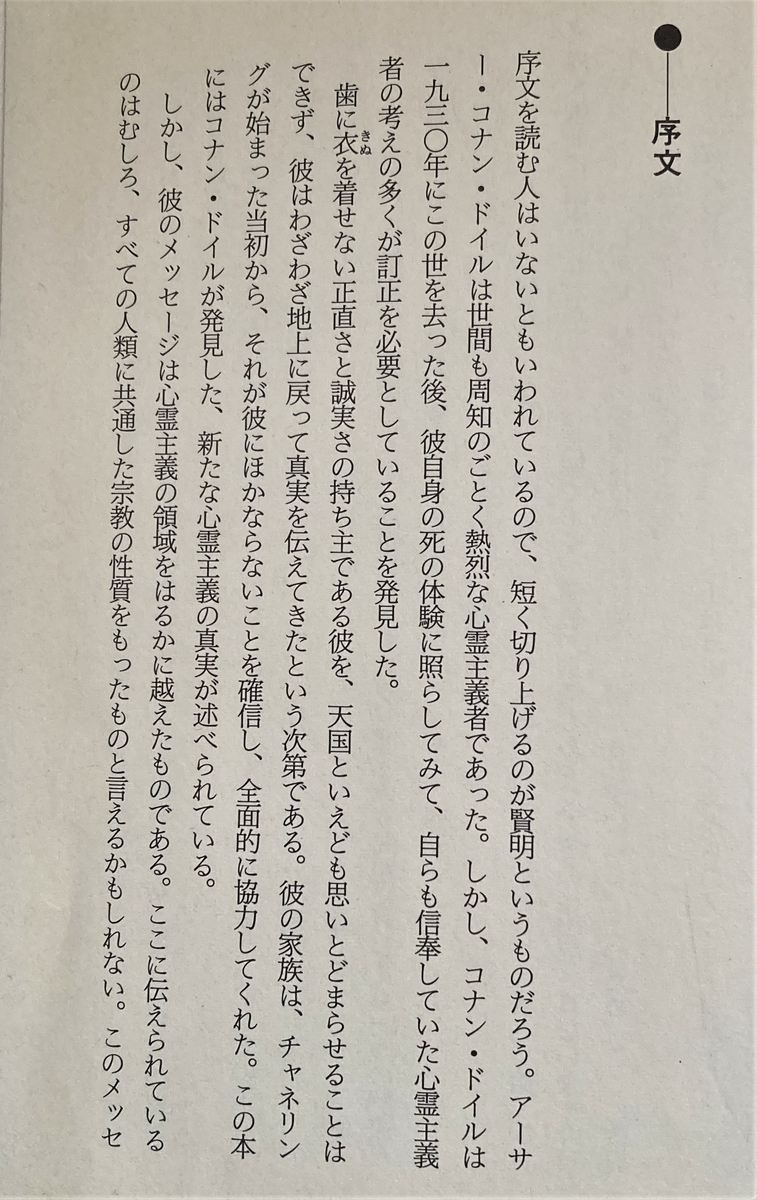 ●―序文
序文を読む人はいないともいわれているので、短く切り上げるのが賢明というものだろう。アーサ
ー・コナン・ドイルは世間も周知のごとく熱烈な心霊主義者であった。しかし、コナン・ドイルは
一九三〇年にこの世を去った後、彼自身の死の体験に照らしてみて、自らも信奉していた心霊主義
者の考えの多くが訂正を必要としていることを発見した。
歯に衣きぬを着せない正直さと誠実さの持ち主である彼を、天国といえども思いとどまらせることは
できず、彼はわざわざ地上に戻って真実を伝えてきたという次第である。彼の家族は、チャネリン
グが始まった当初から、それが彼にほかならないことを確信し、全面的に協力してくれた。この本
にはコナン・ドイルが発見した、新たな心霊主義の真実が述べられている。
しかし、彼のメッセージは心霊主義の領域をはるかに越えたものである。ここに伝えられている
のはむしろ、すべての人類に共通した宗教の性質をもったものと言えるかもしれない。このメッセ